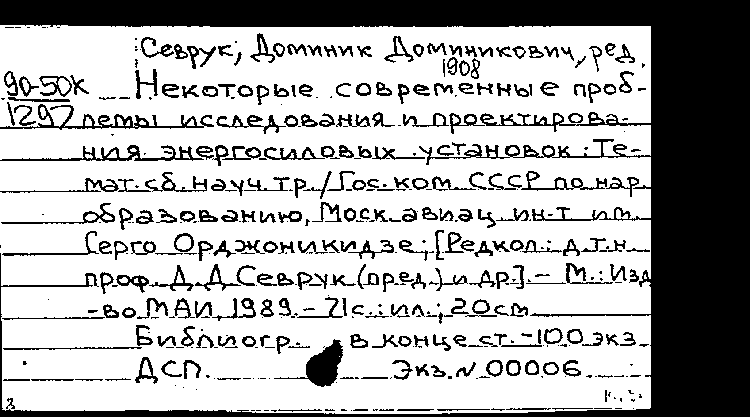 Севрук, Доминик Доминикович, ред.
1908
90-50К Некоторые современные проб-
1297 лемы исследования и проектирова-
ния энергосиловых установок : Те-
мат. сб. науч. тр. / Гос. ком. СССР по нар.
образованию, Моск. авиац. ин-т им.
Серго Орджоникидзе ; [Редкол.: д.т.н.
проф. Д. Д. Севрук (пред.) и др.]. - М. : Изд
-во МАИ, 1989. - 71 с. : ил. ; 20 см
Библиогр. в конце ст. - 100 экз.
ДСП. Экз. № 00006
8